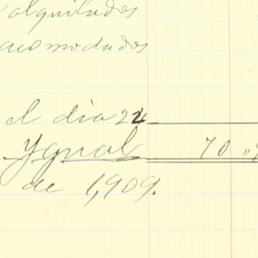 alquilados
acomodados
el dia 24
Ygual 70 "
de 1,909.